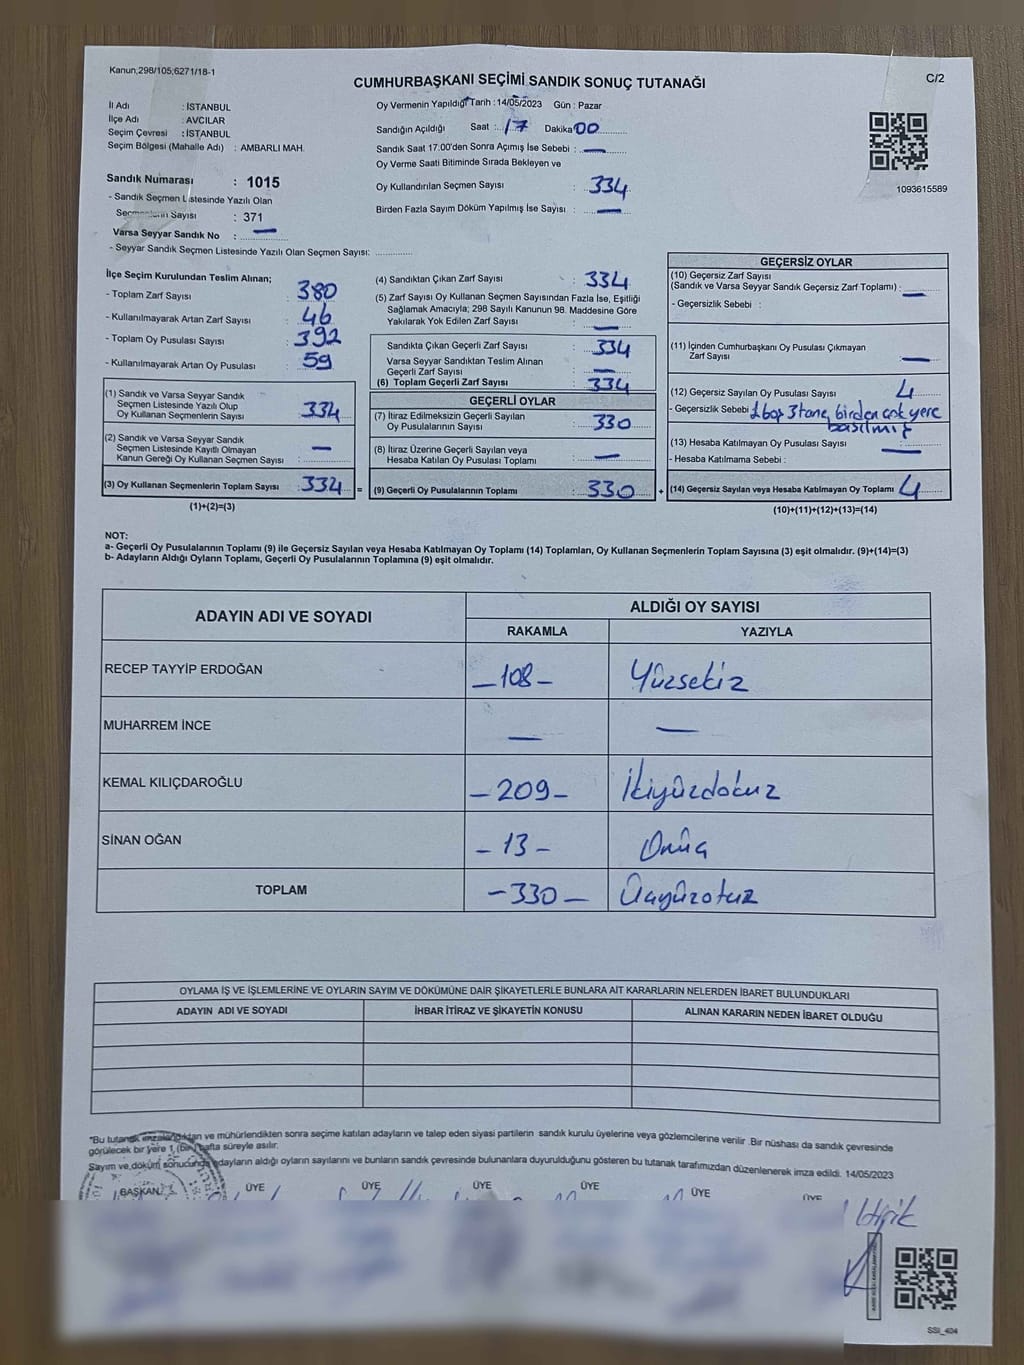 Kanun;298/105;6271/18-1
CUMHURBAŞKANI SEÇİMİ SANDIK SONUÇ TUTANAĞI
C/2
İl Adı : İSTANBUL
İlçe Adı : AVCILAR
Seçim Çevresi : İSTANBUL
Seçim Bölgesi (Mahalle Adı) : AMBARLI MAH.
Sandık Numarası : 1015
- Sandık Seçmen Listesinde Yazılı Olan
Seçmenlerin Sayısı : 371
Varsa Seyyar Sandık No : —
- Seyyar Sandık Seçmen Listesinde Yazılı Olan Seçmen Sayısı:
Oy Vermenin Yapıldığı Tarih : 14/05/2023 Gün : Pazar
Sandığın Açıldığı Saat : 17 Dakika 00
Sandık Saat 17:00'den Sonra Açmış İse Sebebi : —
Oy Verme Saati Bitiminde Sırada Bekleyen ve
Oy Kullandırılan Seçmen Sayısı : 334
Birden Fazla Sayım Döküm Yapılmış İse Sayısı : —
1093615589
İlçe Seçim Kurulundan Teslim Alınan;
- Toplam Zarf Sayısı : 380
- Kullanılmayarak Artan Zarf Sayısı : 46
- Toplam Oy Pusulası Sayısı : 392
- Kullanılmayarak Artan Oy Pusulası : 59
(1) Sandık ve Varsa Seyyar Sandık
Seçmen Listesinde Yazılı Olup
Oy Kullanan Seçmenlerin Sayısı : 334
(2) Sandık ve Varsa Seyyar Sandık
Seçmen Listesinde Kayıtlı Olmayan
Kanun Gereği Oy Kullanan Seçmen Sayısı : —
(3) Oy Kullanan Seçmenlerin Toplam Sayısı : 334 =
(1)+(2)=(3)
(4) Sandıktan Çıkan Zarf Sayısı : 334
(5) Zarf Sayısı Oy Kullanan Seçmen Sayısından Fazla İse, Eşitliği
Sağlamak Amacıyla; 298 Sayılı Kanunun 98. Maddesine Göre
Yakılarak Yok Edilen Zarf Sayısı : —
Sandıkta Çıkan Geçerli Zarf Sayısı : 334
Varsa Seyyar Sandıktan Teslim Alınan
Geçerli Zarf Sayısı : —
(6) Toplam Geçerli Zarf Sayısı : 334
GEÇERLİ OYLAR
(7) İtiraz Edilmeksizin Geçerli Sayılan
Oy Pusulalarının Sayısı : 330
(8) İtiraz Üzerine Geçerli Sayılan veya
Hesaba Katılan Oy Pusulası Toplamı : —
(9) Geçerli Oy Pusulalarının Toplamı : 330 +
GEÇERSİZ OYLAR
(10) Geçersiz Zarf Sayısı
(Sandık ve Varsa Seyyar Sandık Geçersiz Zarf Toplamı) : —
- Geçersizlik Sebebi :
(11) İçinden Cumhurbaşkanı Oy Pusulası Çıkmayan
Zarf Sayısı : —
(12) Geçersiz Sayılan Oy Pusulası Sayısı : 4
- Geçersizlik Sebebi : 1 boş 3 tane, birden çok yere
basılmış
(13) Hesaba Katılmayan Oy Pusulası Sayısı : —
- Hesaba Katılmama Sebebi :
(14) Geçersiz Sayılan veya Hesaba Katılmayan Oy Toplamı : 4
(10)+(11)+(12)+(13)=(14)
NOT:
a- Geçerli Oy Pusulalarının Toplamı (9) ile Geçersiz Sayılan veya Hesaba Katılmayan Oy Toplamı (14) Toplamları, Oy Kullanan Seçmenlerin Toplam Sayısına (3) eşit olmalıdır. (9)+(14)=(3)
b- Adayların Aldığı Oyların Toplamı, Geçerli Oy Pusulalarının Toplamına (9) eşit olmalıdır.
ADAYIN ADI VE SOYADI
ALDIĞI OY SAYISI
RAKAMLA YAZIYLA
RECEP TAYYİP ERDOĞAN –108– Yüzsekiz
MUHARREM İNCE — —
KEMAL KILIÇDAROĞLU –209– İkiyüzdokuz
SİNAN OĞAN –13– Onüç
TOPLAM –330– Üçyüzotuz
OYLAMA İŞ VE İŞLEMLERİNE VE OYLARIN SAYIM VE DÖKÜMÜNE DAİR ŞİKAYETLERLE BUNLARA AİT KARARLARIN NELERDEN İBARET BULUNDUKLARI
ADAYIN ADI VE SOYADI
İHBAR İTİRAZ VE ŞİKAYETİN KONUSU
ALINAN KARARIN NEDEN İBARET OLDUĞU
*Bu tutanak imzalandıktan ve mühürlendikten sonra seçime katılan adayların ve talep eden siyasi partilerin sandık kurulu üyelerine veya gözlemcilerine verilir .Bir nüshası da sandık çevresinde
görülecek bir yere 1 (bir) hafta süreyle asılır.
Sayım ve döküm sonucunda adayların aldığı oyların sayılarını ve bunların sandık çevresinde bulunanlara duyurulduğunu gösteren bu tutanak tarafımızdan düzenlenerek imza edildi. 14/05/2023
BAŞKAN ÜYE ÜYE ÜYE ÜYE ÜYE ÜYE
SSI_404